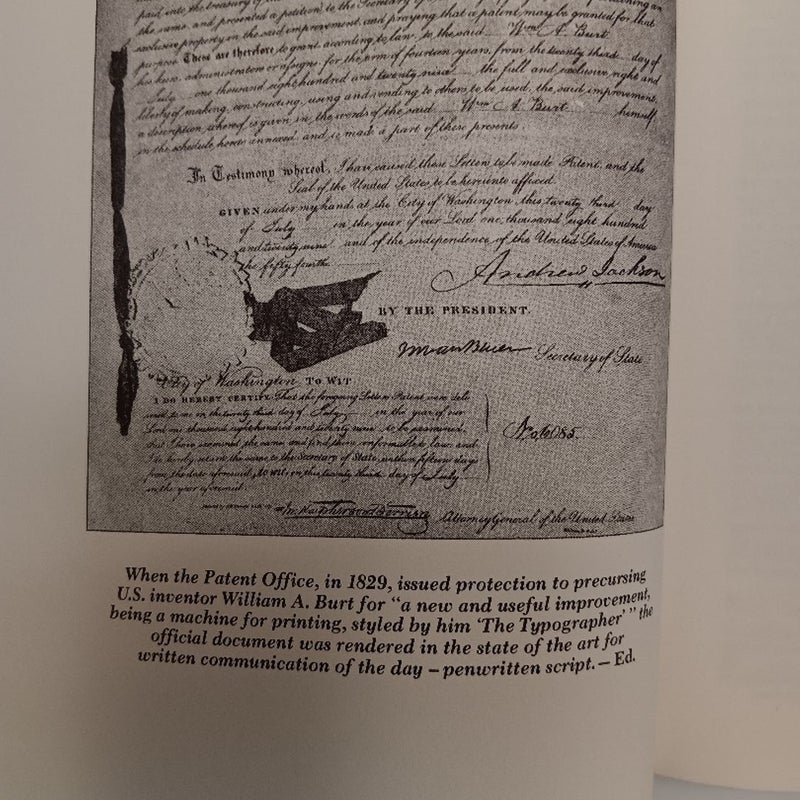 paid into the treasury of the
the sums and presented a petition to the Secretary of State
exclusive property in the said improvement, and praying that a patent may be granted for that
purpose These are therefore to grant according to law, to the said Wm A. Burt
his heirs, administrators or assigns, for the term of fourteen years, from the twenty third day of
July one thousand eight hundred and twenty nine the full and exclusive right and
liberty of making, constructing, using and vending to others to be used, the said improvement,
a description whereof is given in the words of the said Wm A. Burt himself
in the schedule hereto annexed and is made a part of these presents.
In Testimony whereof, I have caused these Letters to be made Patent, and the
Seal of the United States to be hereunto affixed.
GIVEN under my hand, at the City of Washington, this twenty third day
of July in the year of our Lord one thousand eight hundred
and twenty nine and of the independence of the United States of America
the fifty fourth
Andrew Jackson
BY THE PRESIDENT.
Secretary of State
City of Washington TO WIT
I DO HEREBY CERTIFY, That the foregoing Letters Patent were deli
vered to me on the twenty third day of July in the year of our
Lord one thousand eight hundred and twenty nine to be examined,
that I have examined the same, and find them conformable to law and
I do hereby return the same to the Secretary of State, within fifteen days
from the date aforesaid, TO WIT, on this twenty third day of July
in the year aforesaid.
Attorney General of the United States
When the Patent Office, in 1829, issued protection to precursing
U.S. inventor William A. Burt for "a new and useful improvement,
being a machine for printing, styled by him 'The Typographer' " the
official document was rendered in the state of the art for
written communication of the day – penwritten script. – Ed.